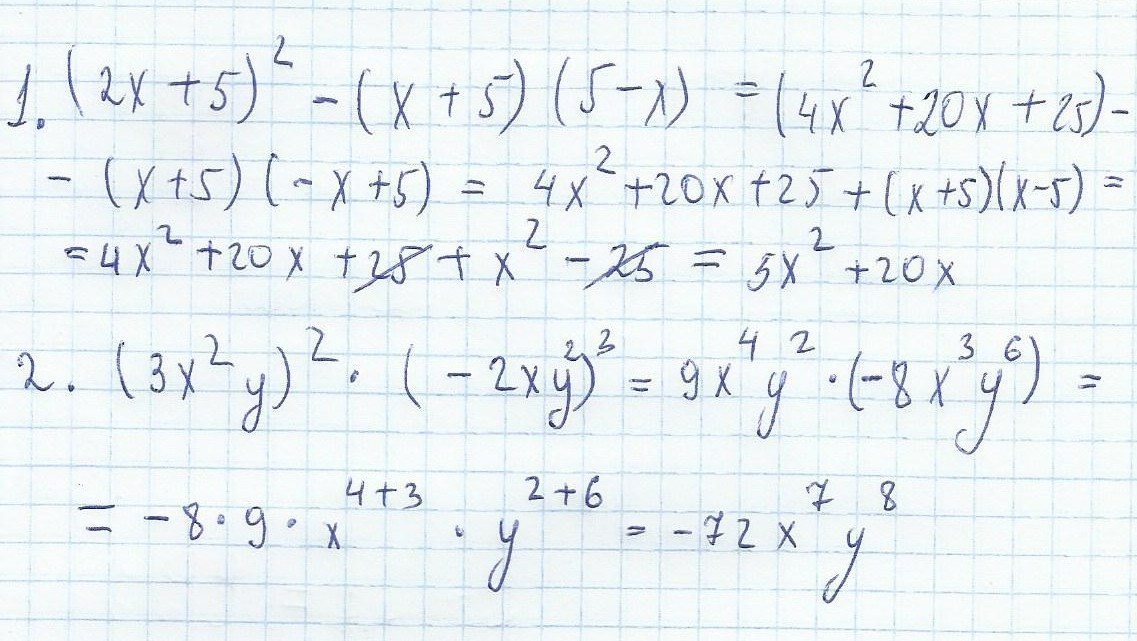 1. (2x + 5)² - (x + 5) (5 - x) = (4x² + 20x + 25) -
- (x + 5) (- x + 5) = 4x² + 20x + 25 + (x + 5)(x - 5) =
= 4x² + 20x + 25 + x² - 25 = 5x² + 20x
2. (3x²y)² · (- 2xy²)³ = 9x⁴y² · (-8x³y⁶) =
= - 8 · 9 · x⁴⁺³ · y²⁺⁶ = - 72x⁷y⁸